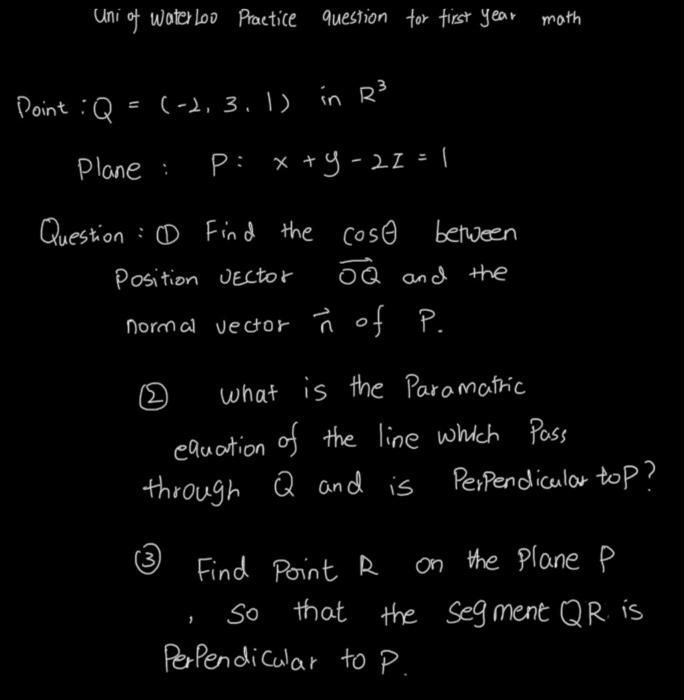 Uni of Waterloo Practice question for first year math
Point : Q = (-2, 3, 1) in R³
Plane : P: x + y - 2z = 1
Question : ① Find the cosθ between
Position vector \overrightarrow{OQ} and the
normal vector \vec{n} of P.
② what is the Paramatric
equation of the line which Pass
through Q and is PerPendicular to P?
③ Find Point R on the Plane P
, so that the segment QR is
PerPendicular to P.